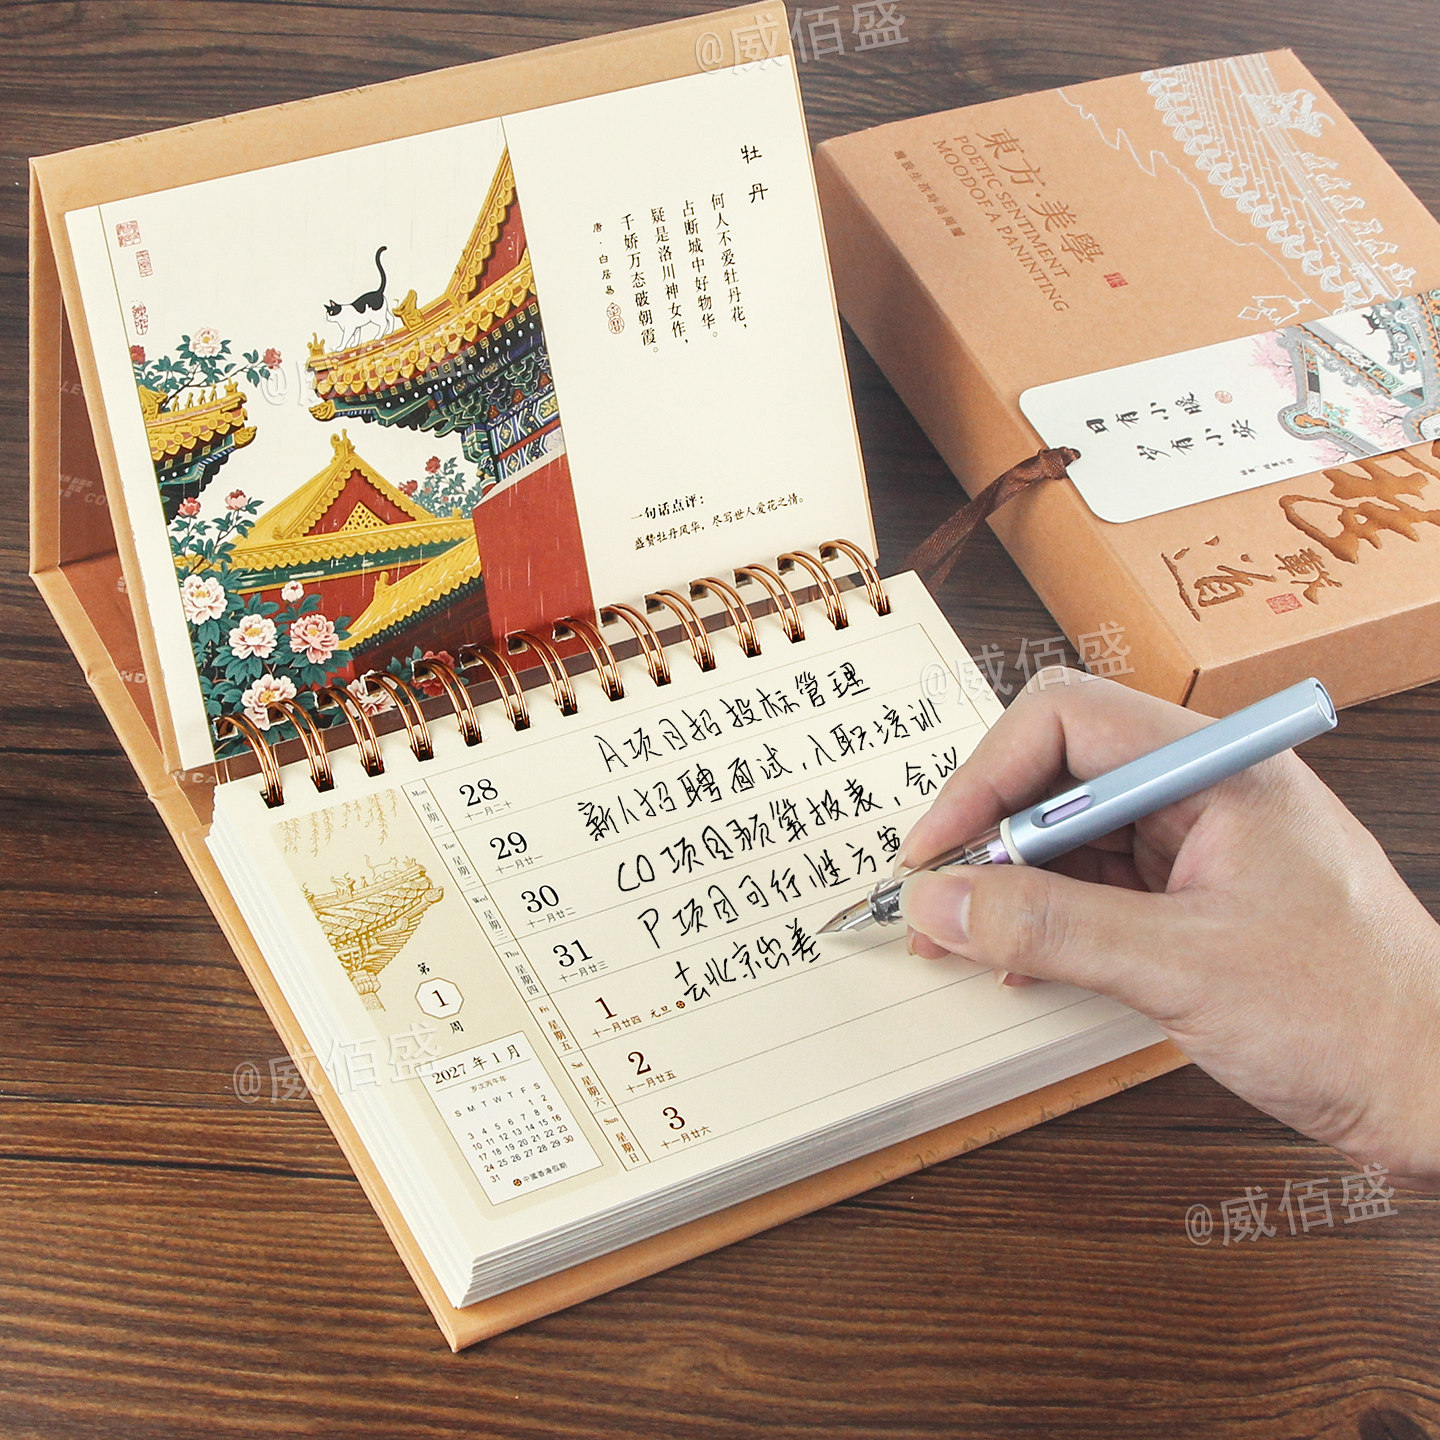 @威佰盛
牡丹
何人不爱牡丹花，
占断城中好物华。
疑是洛川神女作，
千娇万态破朝霞。
唐·白居易
一句话点评：
盛赞牡丹风华，尽写世人爱花之情。
@威佰盛
東方·美學
POETIC SENTIMENT
MOOD OF A PANINTING
日有小暖
岁有小安
載道
@威佰盛
A项目招投标管理
Mon 星期一 28 十一月二十
新人招聘面试，入职培训
Tue 星期二 29 十一月廿一
CO项目预算报表，会议
Wed 星期三 30 十一月廿二
P项目可行性方案
Thu 星期四 31 十一月廿三
去北京出差
Fri 星期五 1 十一月廿四 元旦
Sat 星期六 2 十一月廿五
Sun 星期日 3 十一月廿六
第
1
周
@威佰盛
2027年1月
岁次丙午年
S M T W T F S
1 2
3 4 5 6 7 8 9
10 11 12 13 14 15 16
17 18 19 20 21 22 23
24 25 26 27 28 29 30
31
中國香港假期
@威佰盛